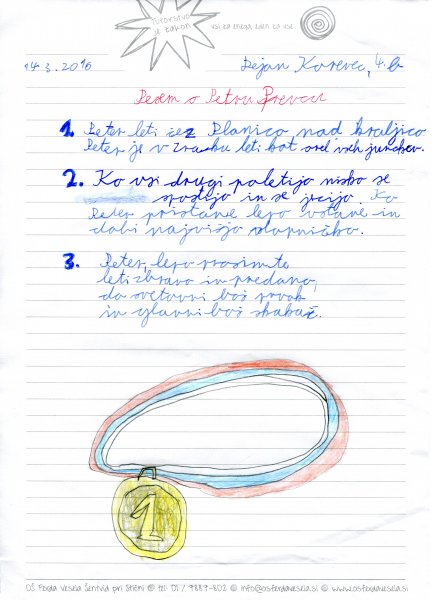 Tutorstvo je zakon
vsi za enega, eden za vse
14.3.2016
Dejan Korevec, 4.b
Pesem o Petru Prevcu
1. Peter leti čez Planico nad kraljico
Peter je v zraku leti kot orel vseh junakov.
2. Ko vsi drugi poletijo nisko se
spotijo in se jezijo. Ko
Peter pristane lepo vstane in
dobi najvišjo stopničko.
3. Peter, lepo prosim te
leti zbrano in predano,
da svetovni boš prvak
in glavni boš skakač.
1
OŠ Ferda Vesela Šentvid pri Stični @ tel: 01 / 7889-802 @ info@osferdavesela.si @ www.osferdavesela.si